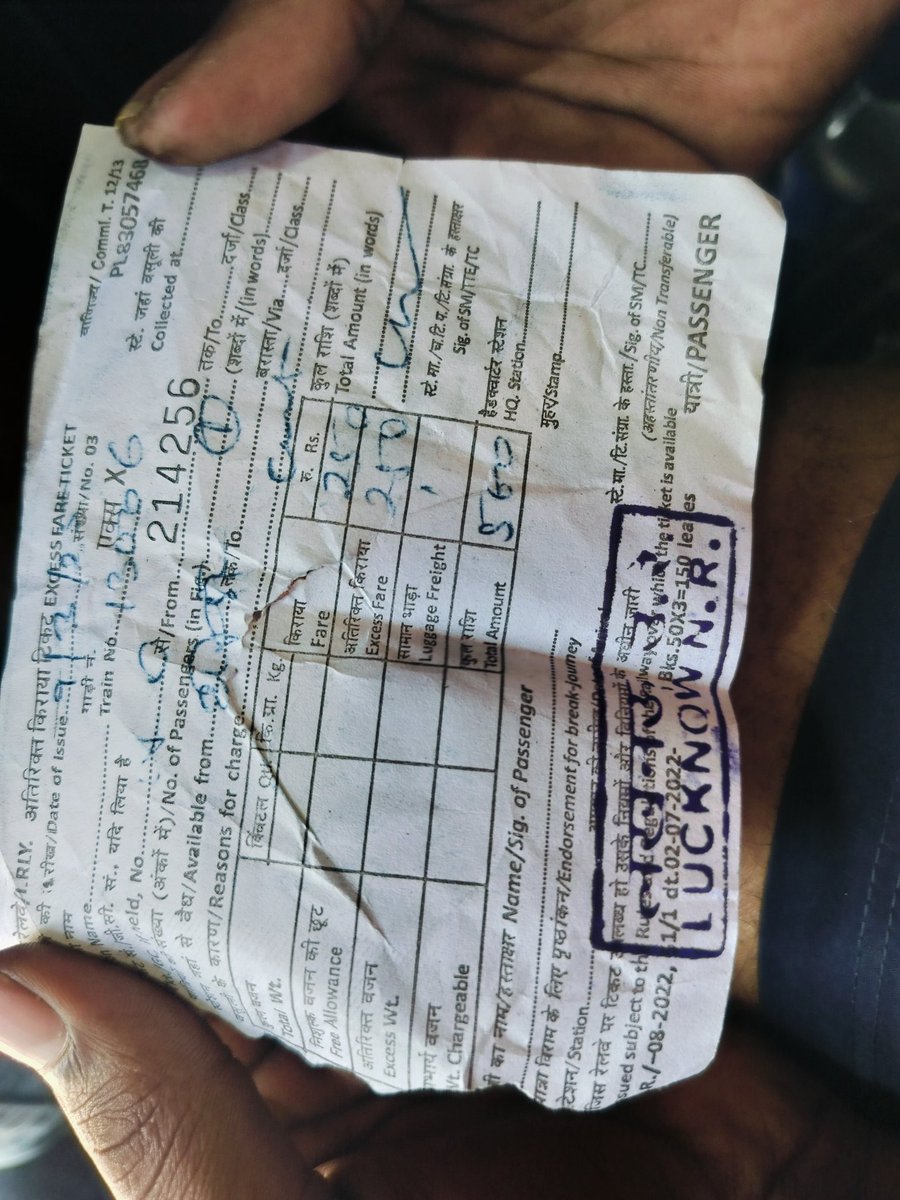 रेलवे/I.RLY. अतिरिक्त किराया टिकट EXCESS FARE TICKET वाणिज्य/ Comml. T. 12/13
PL83057468
की तारीख/Date of Issue संख्या/No. 03
नाम
Name
गाड़ी नं.
Train No. एक्स X6
स्टे. जहां वसूली की
Collected at
सं., यदि लिया है
held, No. से/From 214256 तक/To दर्जा/Class
संख्या (अंकों में)/No. of Passengers (in Fig.) 1 (शब्दों में/(in words)
से वैध/Available from तक/To बरास्ता/Via दर्जा/Class
कारण/Reasons for charge
Total Wt.
क्विंटल
कि.ग्रा. Kg.
किराया
Fare
रु. Rs.
250
कुल राशि (शब्दों में)
Total Amount (in words)
निशुल्क वजन की छूट
Free Allowance
अतिरिक्त किराया
Excess Fare
250
अतिरिक्त वजन
Excess Wt.
सामान भाड़ा
Luggage Freight
स्टे. मा./च.टि.प./टि.संग्रा. के हस्ताक्षर
Sig. of SM/TTE/TC
वजन
Wt. Chargeable
कुल राशि
Total Amount
500
हैडक्वार्टर स्टेशन
HQ. Station
का नाम/हस्ताक्षर Name/Sig. of Passenger
मुहर/Stamp
यात्रा विराम के लिए पृष्ठांकन/Endorsement for break-journey
स्टेशन/Station
स्टे.मा./टि.संग्रा. के हस्ता./Sig. of SM/TC
जिस रेलवे पर टिकट उपलब्ध हो उसके नियमों और विनियमों के अधीन जारी (अहस्तांतरणीय/Non Transferable)
Issued subject to the Rules and regulations of the railway over which the ticket is available
R./–08-2022, 1/1 dt.02-07-2022- Bks.50X3=150 leaves यात्री/PASSENGER
LUCKNOW N.R.